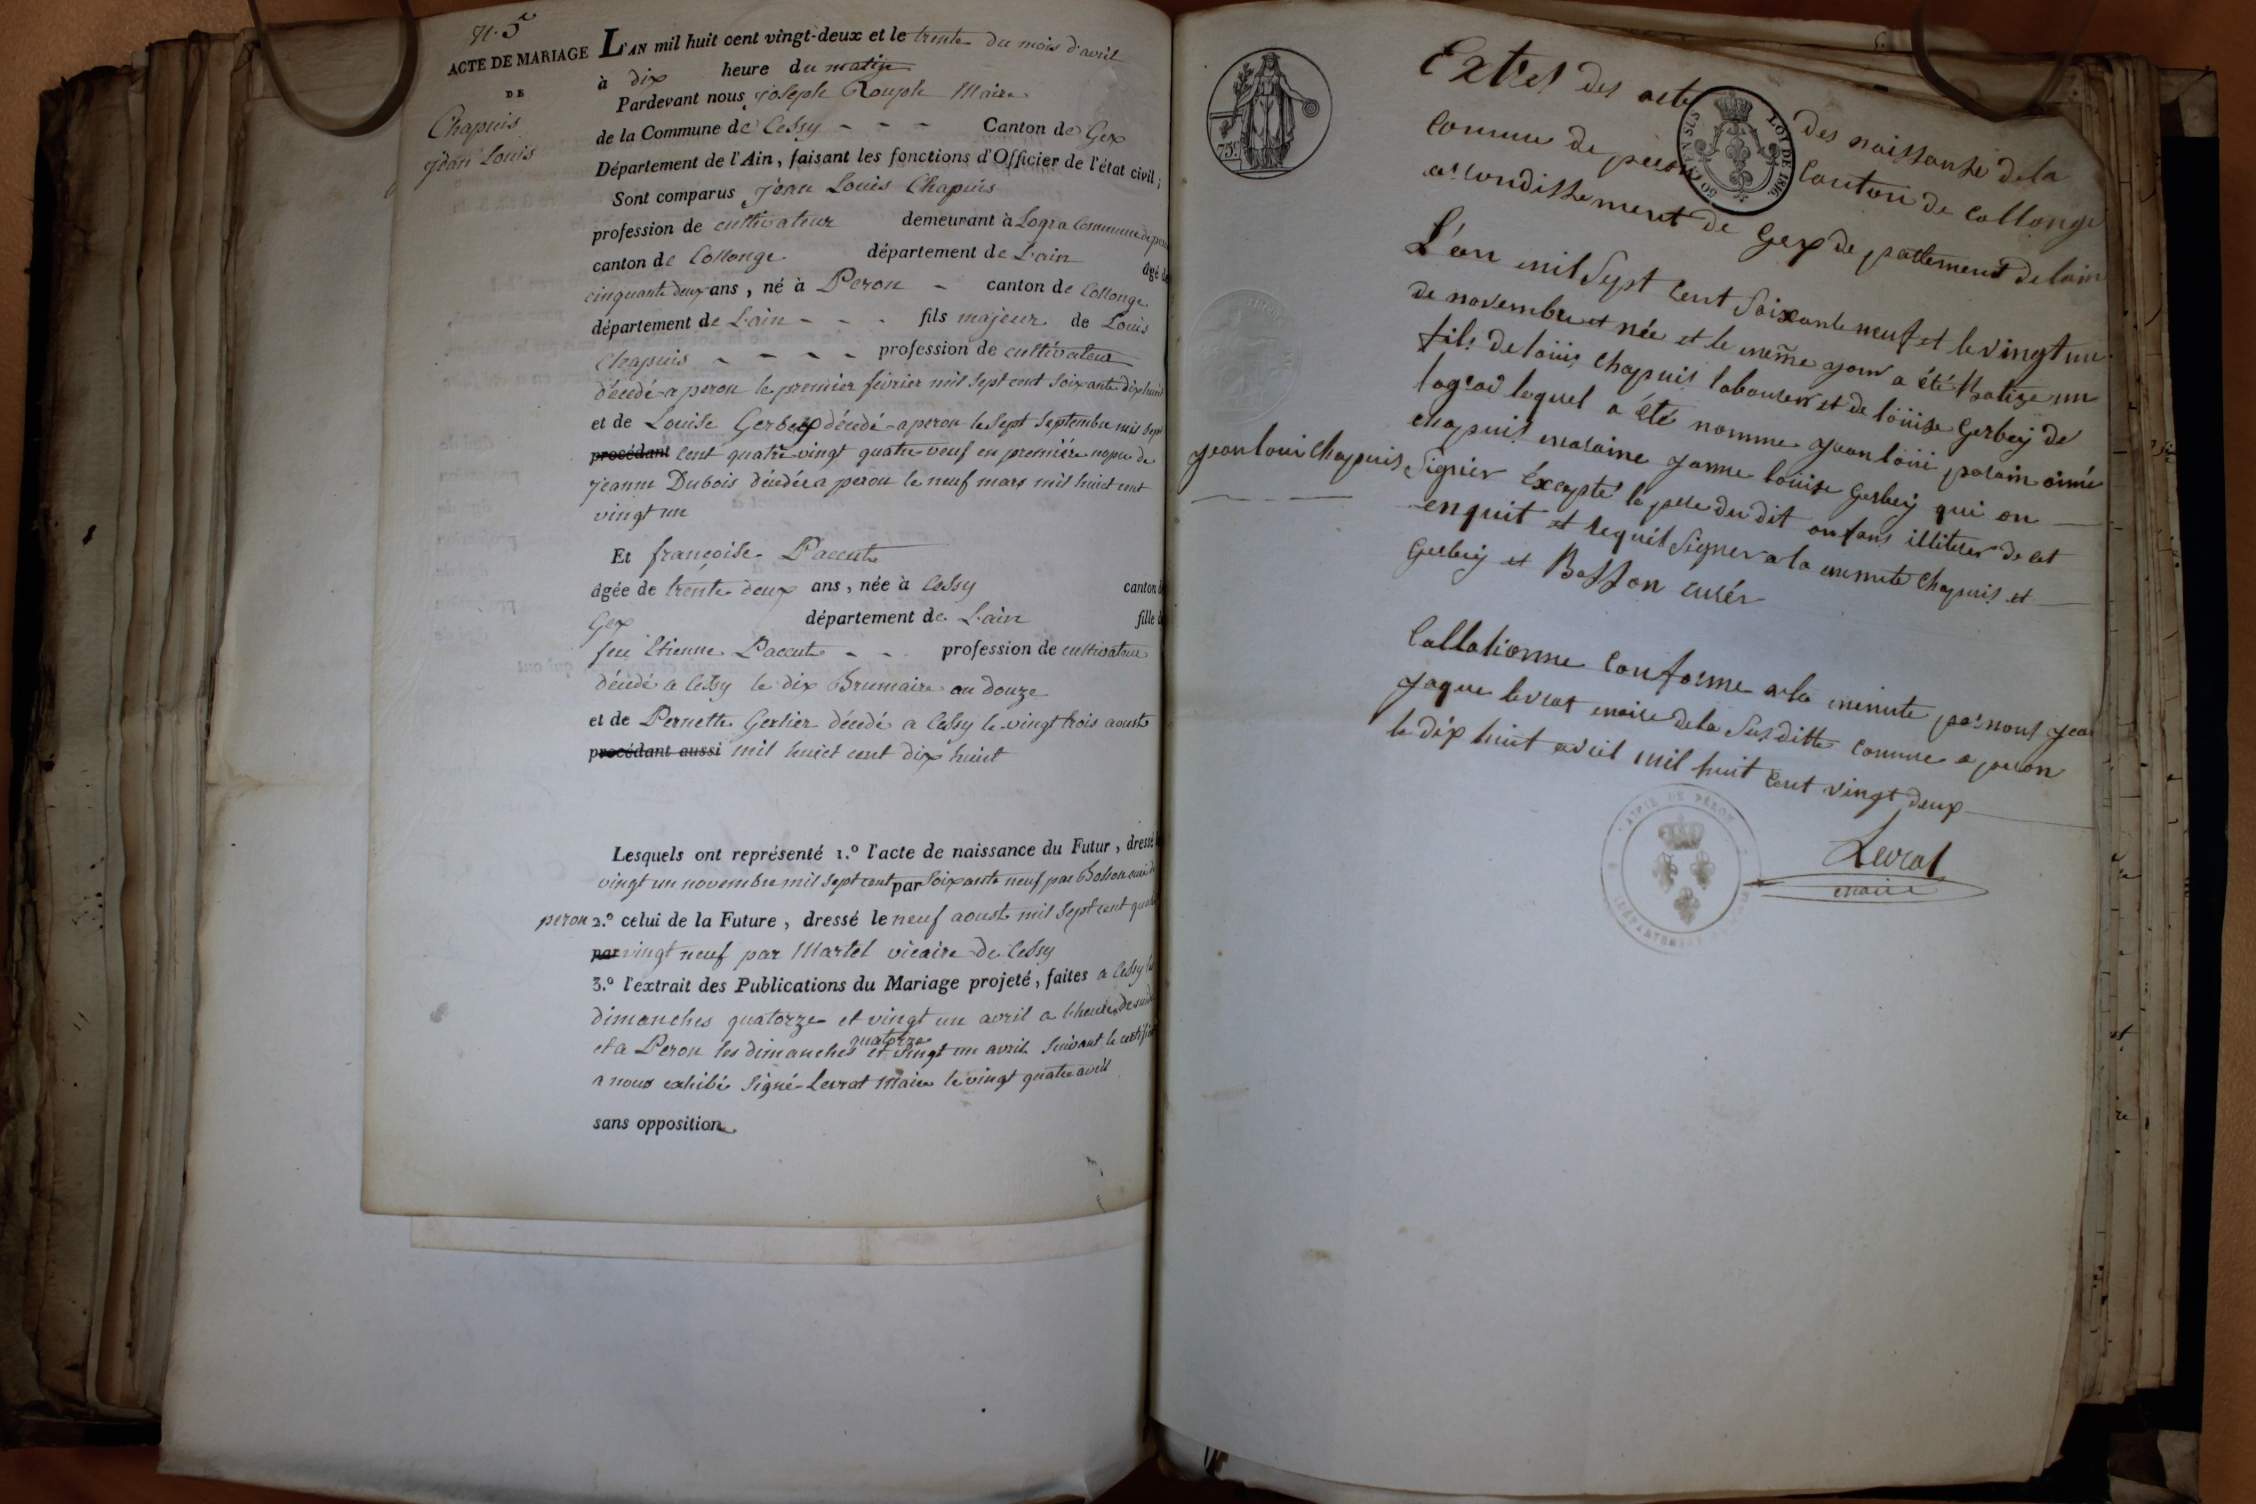 N.º 5
ACTE DE MARIAGE
DE
Chapuis
Jean Louis
L'AN mil huit cent vingt-deux et le trente du mois d'avril
à dix heure du matin
Pardevant nous Joseph Rouph Maire
de la Commune de Cessy - - - Canton de Gex
Département de l'Ain, faisant les fonctions d'Officier de l'état civil;
Sont comparus Jean Louis Chapuis
profession de cultivateur demeurant à Logra Commune de peron
canton de Collonge département de L'ain âgé de
cinquante deux ans, né à Peron - canton de Collonge
département de L'ain - - - fils majeur de Louis
Chapuis - - - - profession de cultivateur
décédé a peron le premier février mil sept cent soixante dix huit
et de Louise Gerbey décédé a peron le sept septembre mil sept
procédant cent quatre vingt quatre veuf en première nopce de
jeanne Dubois décédée a peron le neuf mars mil huict cent
vingt un
Et francoise Paccut
âgée de trente deux ans, née à Cessy canton de
Gex département de L'ain fille de
feu Etienne Paccut - - profession de cultivateur
décédé a Cessy le dix Brumaire an douze
et de Pernette Gerlier décédé a Cessy le vingt trois aoust
procédant aussi mil huict cent dix huict
Lesquels ont représenté 1.º l'acte de naissance du Futur, dressé le
vingt un novembre mil sept cent par soixante neuf par Bosson curé de
peron 2.º celui de la Future, dressé le neuf aoust mil sept cent quatre
par vingt neuf par Martel vicaire de Cessy
3.º l'extrait des Publications du Mariage projeté, faites a Cessy les
dimanches quatorze et vingt un avril a l'heure de midi
et a Peron les dimanches quatorze et vingt un avril suivant le certificat
a nous exhibé signé Levrat Maire le vingt quatre avril
sans opposition.
75
50 CEN. SUS
LOI DE 1816.
Ext.et des acte des naissanse de la
comune de peron Canton de Collonge
arondissement de Gex de partement de lain
L'an mil sept cent soixante neuf et le vingt un
de novembre et née et le meme jour a été Batize un
fils de loüis Chapuis laboureur et de loüise Gerbey de
lograd lequel a été nomme jean loüi parain aimé
chapuis maraine janne louise Gerbey qui on
jean loui Chapuis signer éxcepté le pere du dit anfans illiterer de cet
enquit et requit signer a la minute Chapuis et
Gerbey et Bosson curér
Collationne Conforme a la minute par nous jean
jaque levrat maire de la susditte comune a peron
le dix huit avril mil huit cent vingt deux
Levrat
maire
MAIRIE DE PERON
DÉPARTEMENT